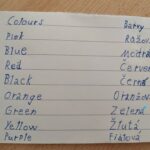 Colours Barvy
Pink Růžov
Blue Modrá
Red Červen
Black Černá
Orange Oranžov
Green Zelená
Yellow Žlutá
Purple Fialová